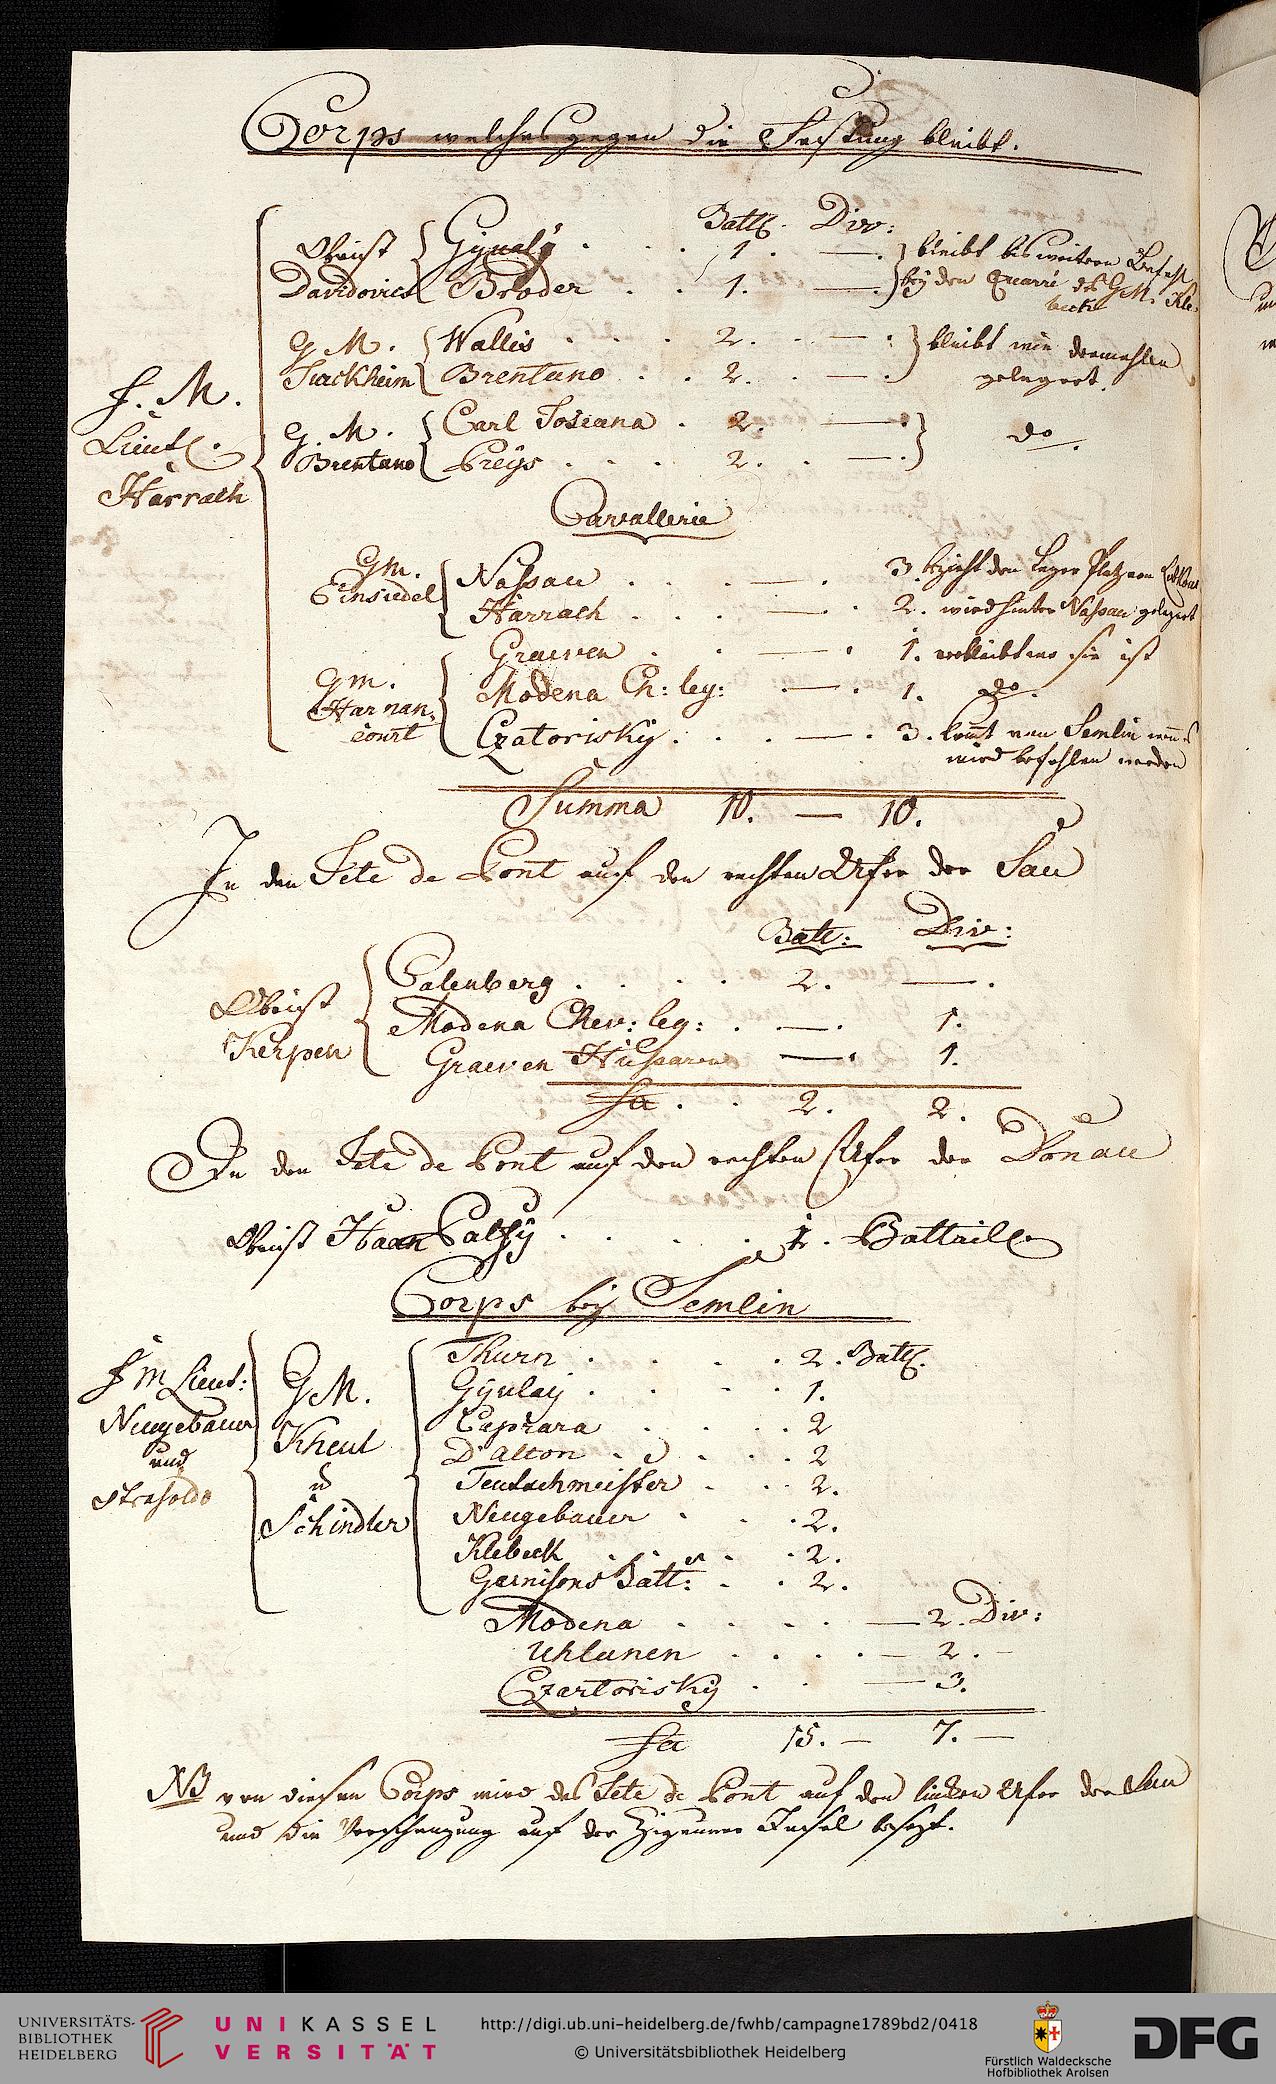 Corps welches gegen die Festung bleibt.
Batt. Div:
Obrist Gyulaÿ . . . 1. — . bleibt bis weitern Befehl
Davidovics Broder . . 1. — . beÿ den Quarré des G M. Kle
beck
G M. Wallis . . . 2. . — . bleibt wie dermahlen
Stackheim Brentano . . 2. . — . gelagert.
F. M.
Lieut.
Harrach
G. M. Carl Toscana . 2. — . do.
Brentano Preÿs . . . 2. . — .
Cavallerie
Gm. Nassau . . . — . 3. bezieht den Lager Platz von
Einsiedel Harrach . . . — . 2. wird hinter Nassau gelagert
Graeven . . — . 1. verbleibt wo sie ist
Gm. Modena Ch: leg: . — . 1. do.
Harnan,
court Czatoriskÿ . . . — . 3. komt von Semlin wenn es
wird befohlen werden
Summa 10. — 10.
In den Tete de Pont auf den rechten Ufer der Sau
Batt: Div:
Obrist
Kerpen
Palenberg . . . . 2. — .
Modena Chev: leg: . — . 1.
Graeven Husaren — . 1.
Sa . . 2. 2.
In den Tete de Pont auf den rechten Ufer der Donau
Obrist Haan Palfÿ . . . . 1. Battaill
Corps beÿ Semlin
F M Lieut:
Neugebauer
und
Strasoldo
G M.
Kheul
u
Schindler
Thurn . . . . 2. Batt.
Gÿulaÿ . . . . 1.
Caprara . . . . 2
D'Alton . . . . 2
Teutschmeister . . 2.
Neugebauer . . . 2.
Klebeck . . . . 2.
Garnisons Batt: . . 2.
Modena . . . . — 2. Div:
Uhlanen . . . . — 2. —
Czartoriskÿ . . — 3.
Sa 15. — 7. —
NB von diesen Corps wird das Tete de Pont auf den linken Ufer der Sau
und die Verschanzung auf der Zigeuner Insel besezt.
UNIVERSITÄTS-
BIBLIOTHEK
HEIDELBERG
UNIKASSEL
VERSITÄT
http://digi.ub.uni-heidelberg.de/fwhb/campagne1789bd2/0418
© Universitätsbibliothek Heidelberg
Fürstlich Waldecksche
Hofbibliothek Arolsen
DFG